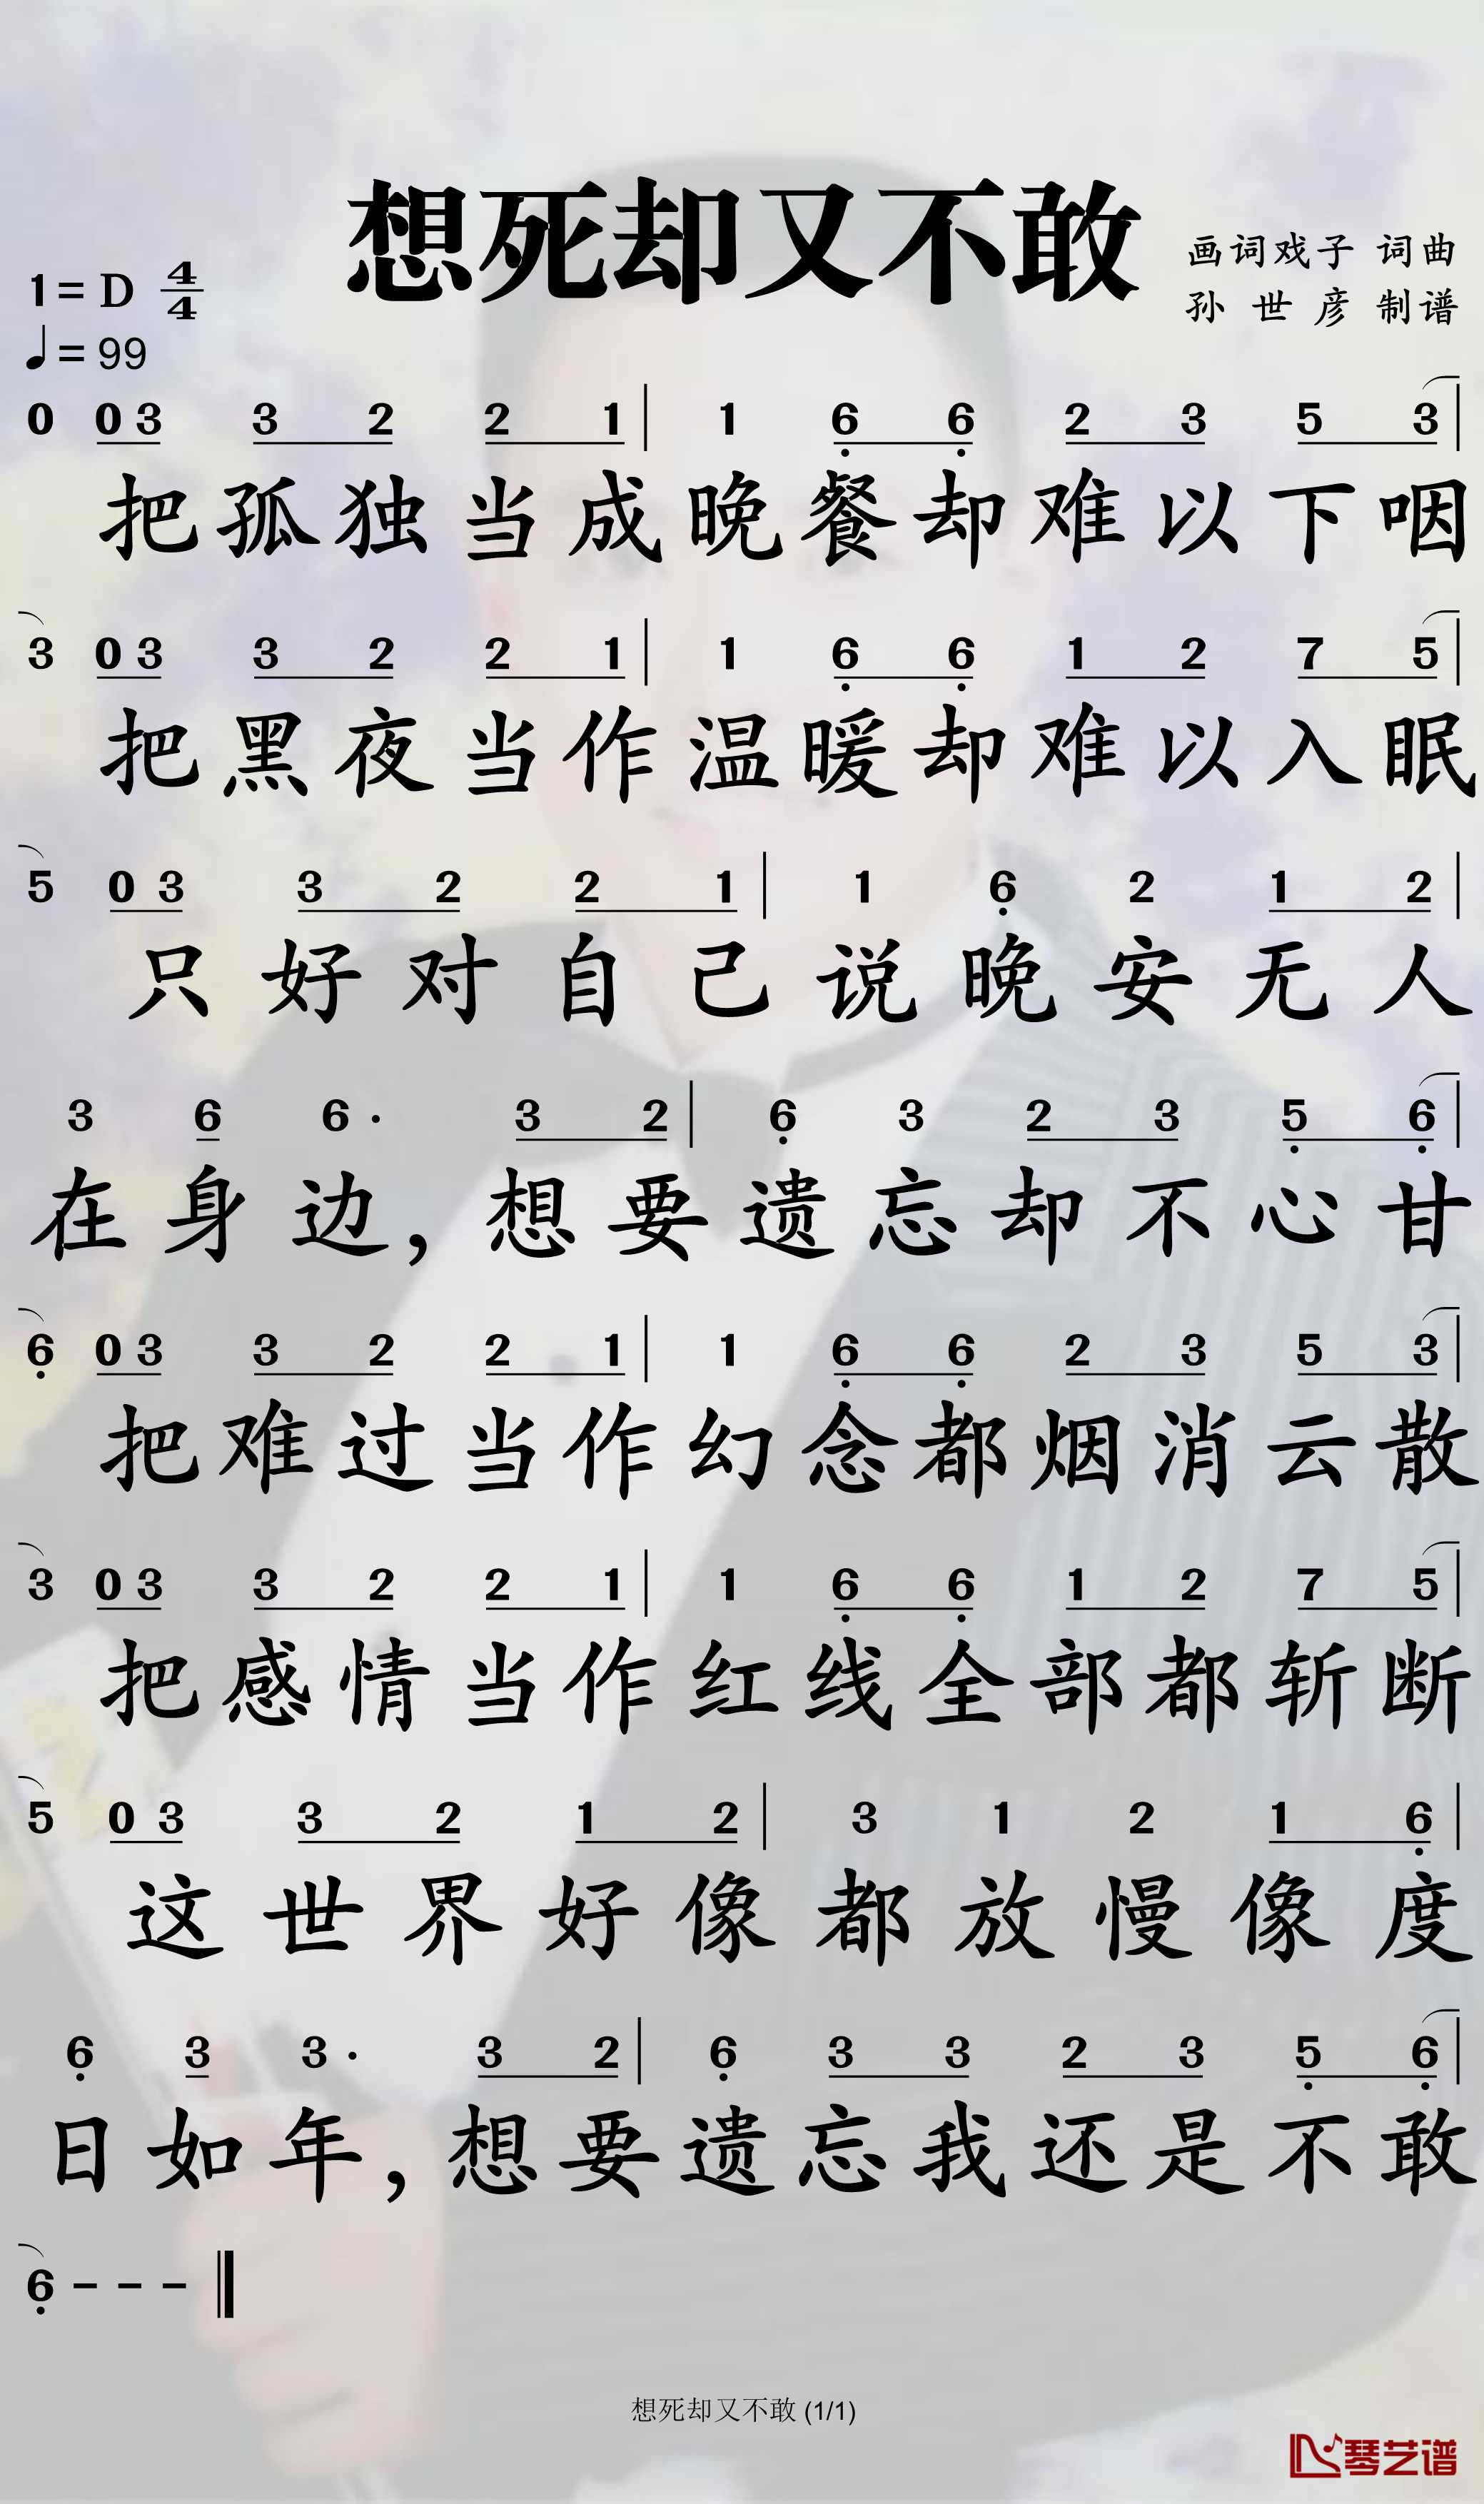 想死却又不敢
画词戏子 词曲
孙世彦 制谱
1= D 4/4
♩= 99
0 0 3 3 2 2 1 | 1 6 6 2 3 5 3 |
把孤独当成晚餐却难以下咽
3 0 3 3 2 2 1 | 1 6 6 1 2 7 5 |
把黑夜当作温暖却难以入眠
5 0 3 3 2 2 1 | 1 6 2 1 2 |
只好对自己说晚安无人
3 6 6· 3 2 | 6 3 2 3 5 6 |
在身边,想要遗忘却不心甘
6 0 3 3 2 2 1 | 1 6 6 2 3 5 3 |
把难过当作幻念都烟消云散
3 0 3 3 2 2 1 | 1 6 6 1 2 7 5 |
把感情当作红线全部都斩断
5 0 3 3 2 1 2 | 3 1 2 1 6 |
这世界好像都放慢像度
6 3 3· 3 2 | 6 3 3 2 3 5 6 |
日如年,想要遗忘我还是不敢
6 - - - ‖
想死却又不敢 (1/1)
琴艺谱